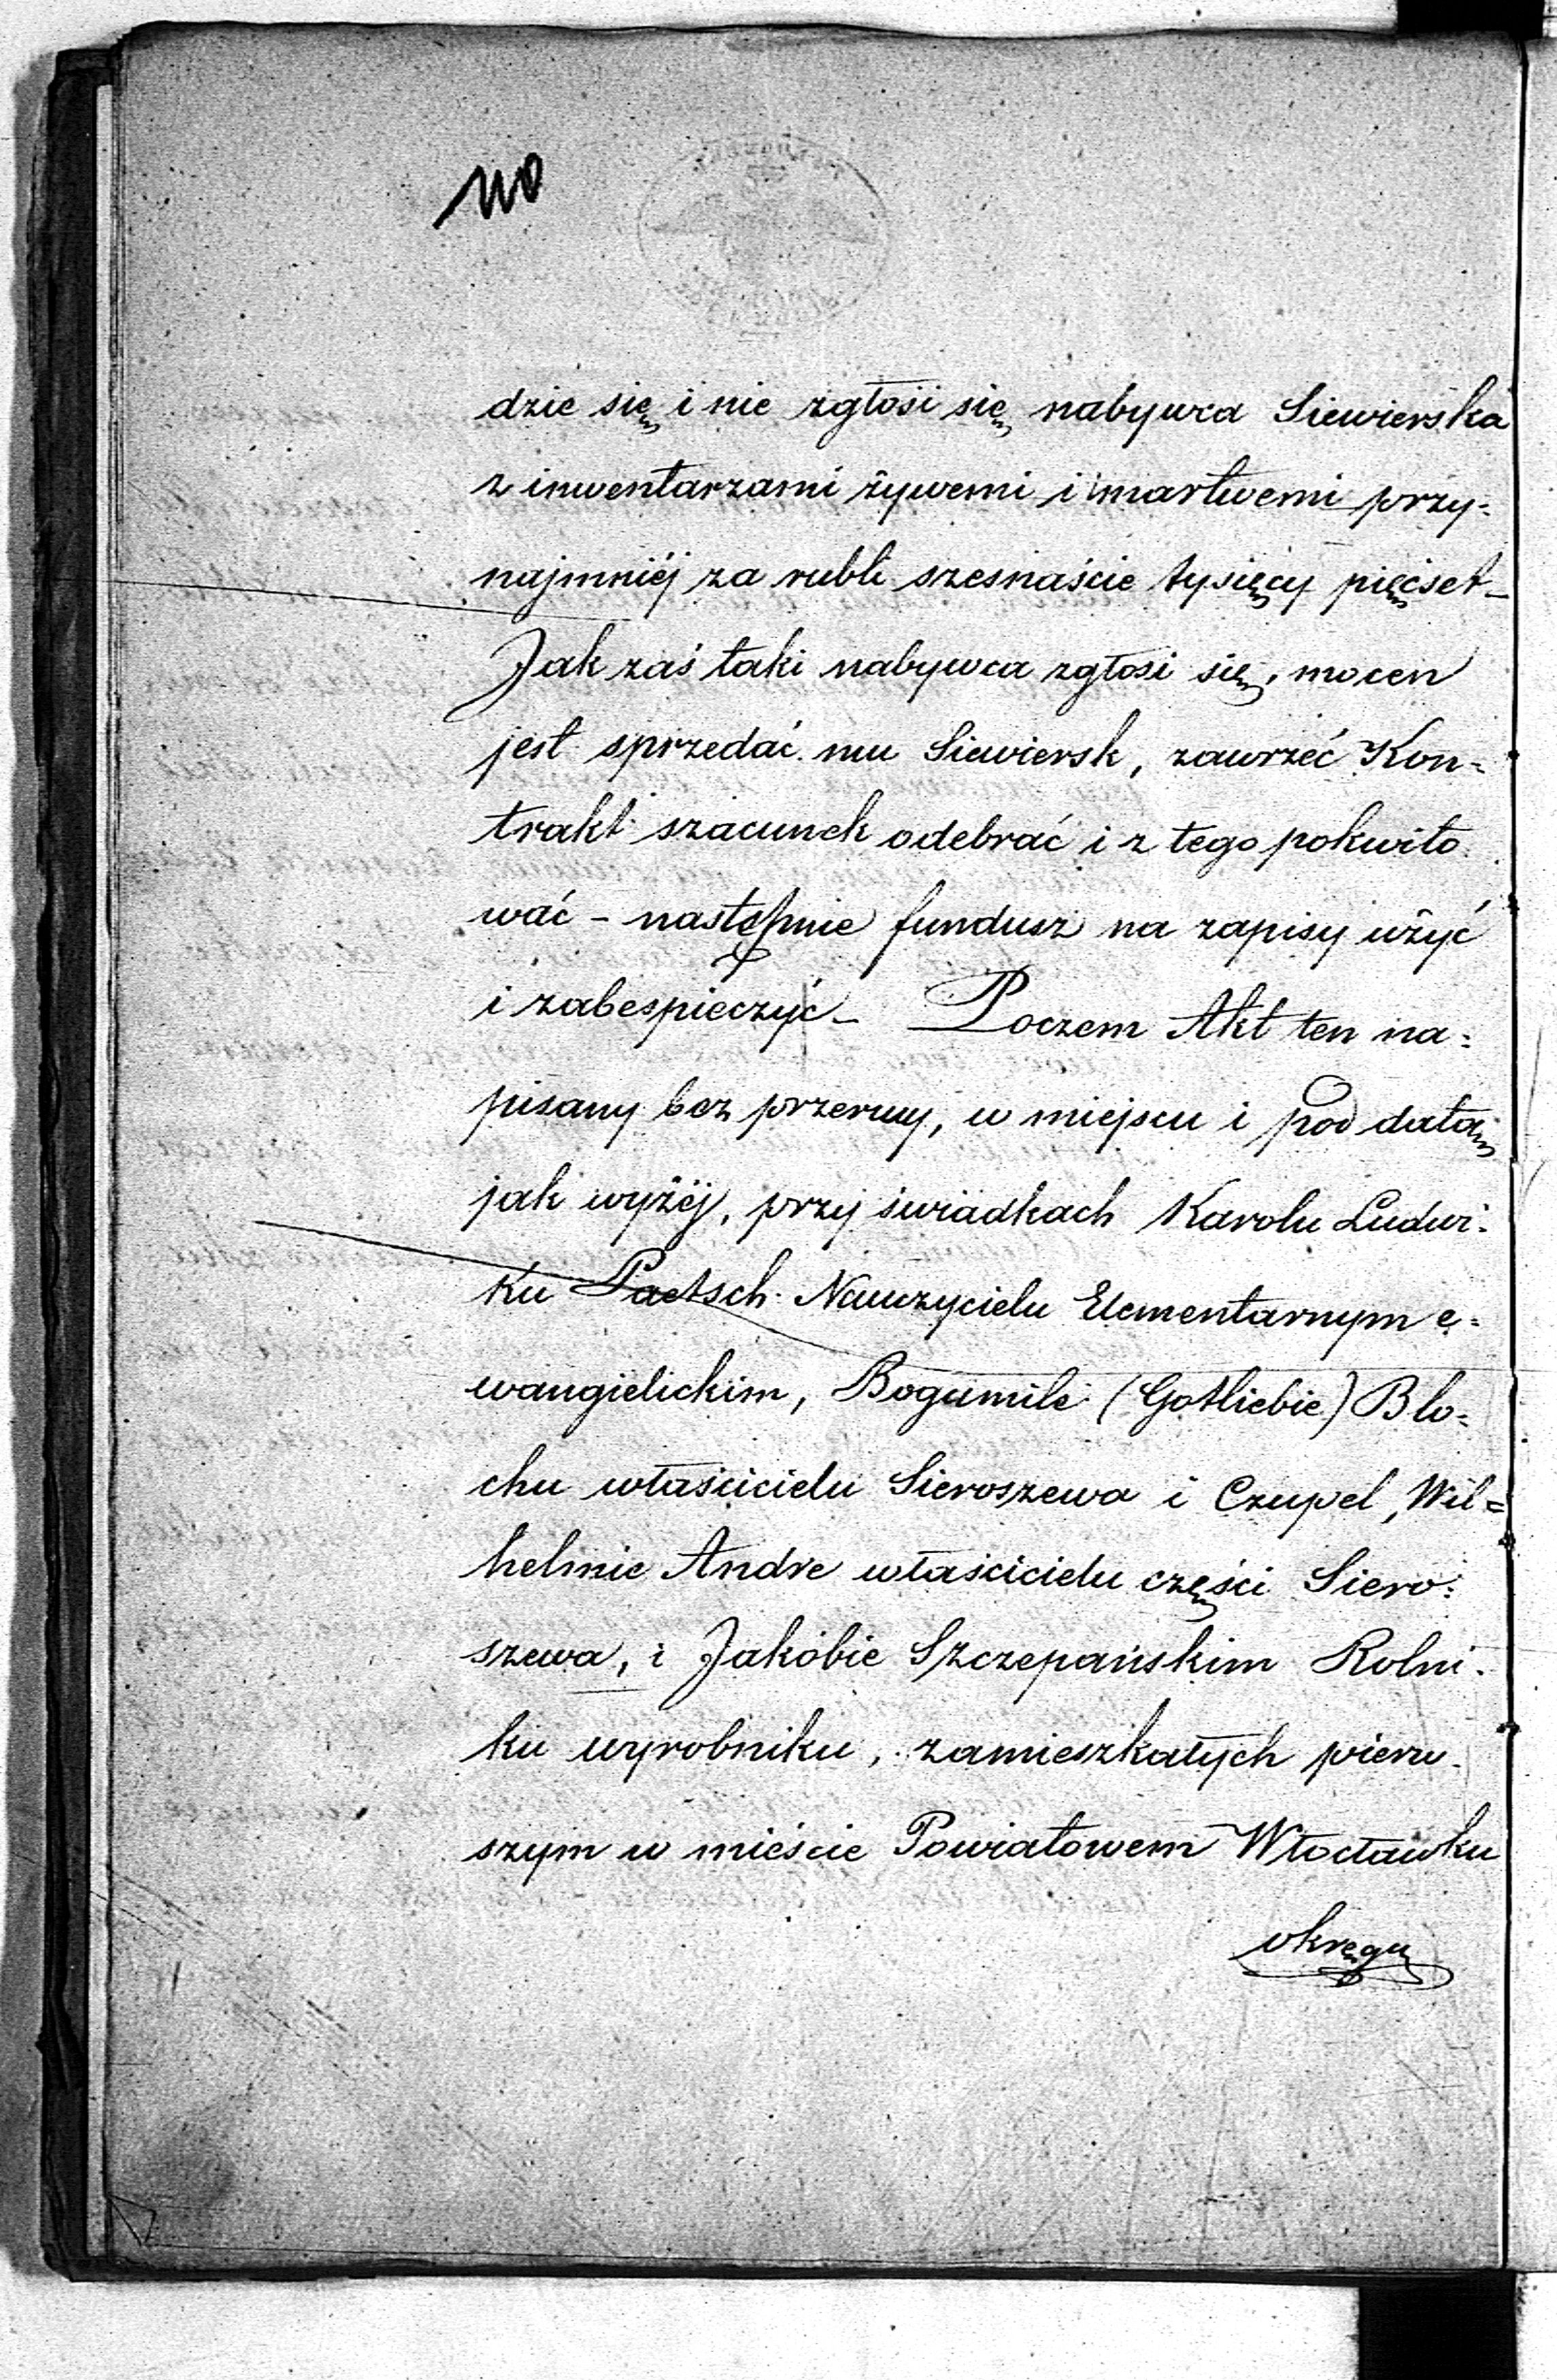 110
dzie się i nie zgłosi się nabywca Siewierska
z inwentarzami żywemi i martwemi przy=
najmniéj za rubli szesnaście tysięcy pięćset_
Jak zaś taki nabywca zgłosi się, mocen
jest sprzedać mu Siewiersk, zawrzeć Kon=
trakt szacunek odebrać i z tego pokwito
wać – następnie fundusz na zapisy użyć
i zabespieczyć – Poczem Akt ten na=
pisany bez przerwy, w miejscu i pod datą
jak wyżéj, przy świadkach Karolu Ludwi=
ku Paetsch Nauczycielu Elementarnym e=
wangielickim, Bogumile (Gotliebie) Blo=
chu właścicielu Sieroszewa i Czupel, Wil=
helmie Andre właścicielu części Siero=
szewa, i Jakóbie Szczepańskim Rolni-
ku wyrobniku, zamieszkałych pierw-
szym w mieście Powiatowem Włocławku
okręgu